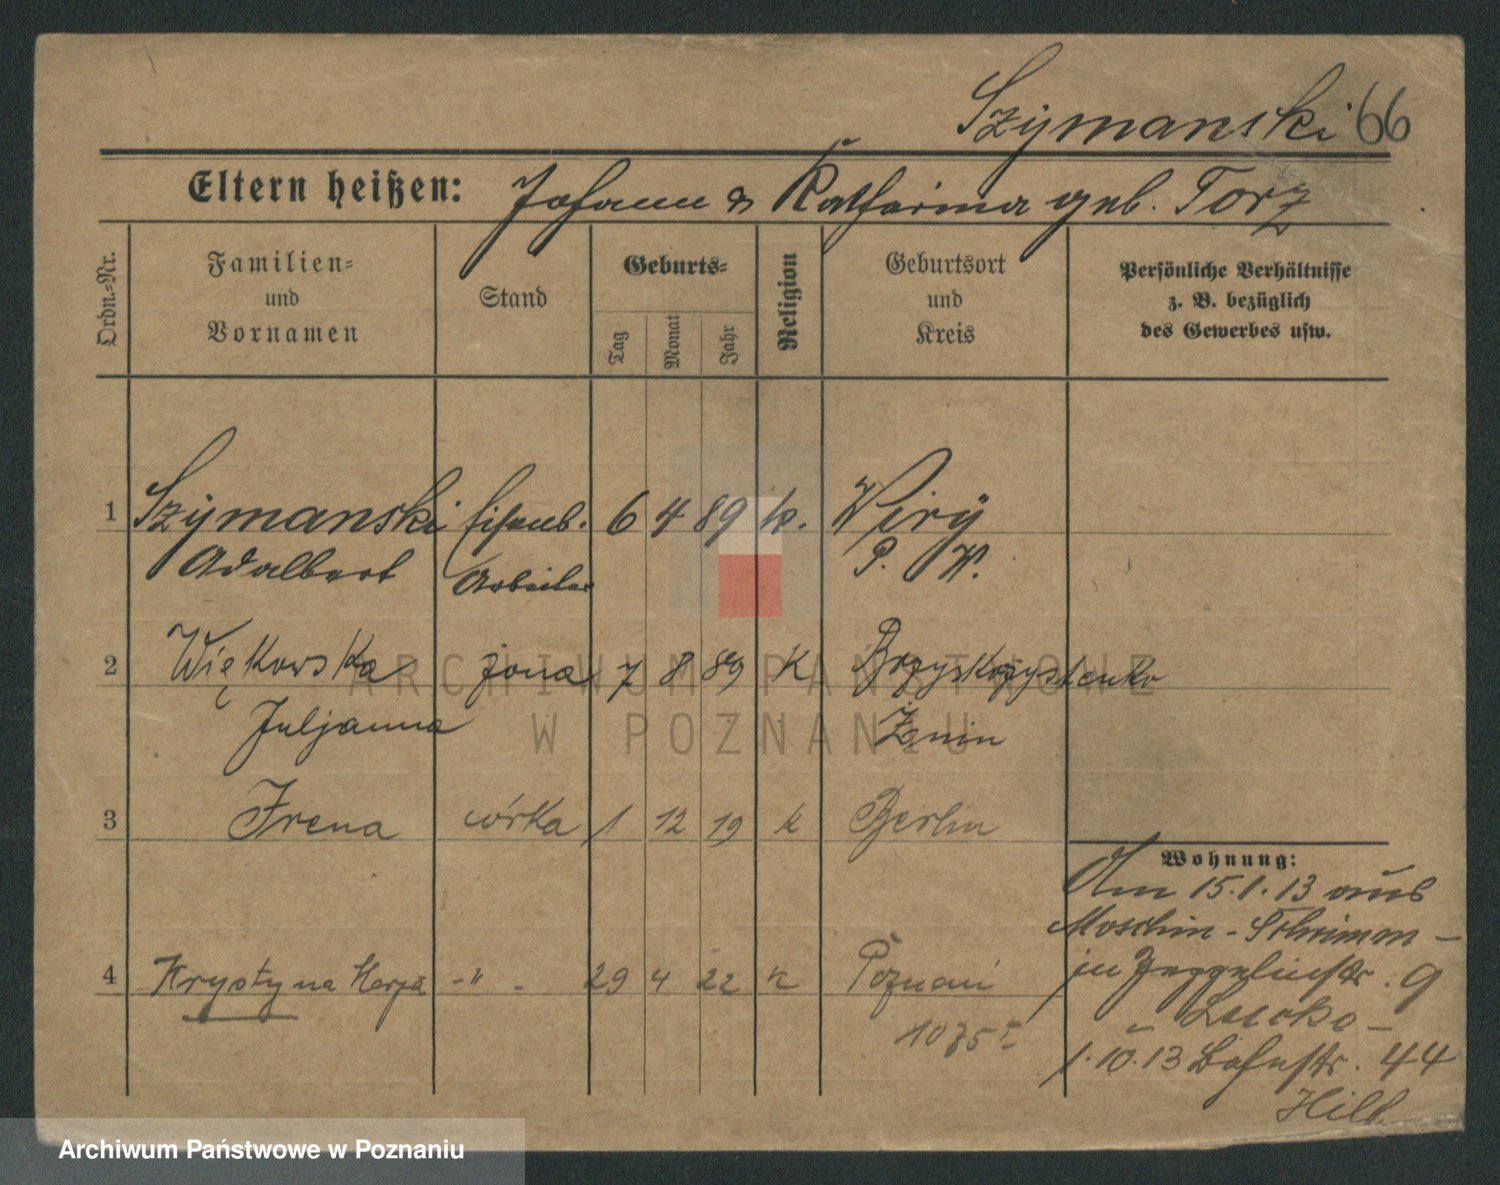 Szymanski 66
Eltern heißen: Johann & Katharina geb. Torz
Ordn.-Nr.
Familien- und Vornamen
Stand
Geburts-
Tag
Monat
Jahr
Religion
Geburtsort und Kreis
Persönliche Verhältnisse
z. B. bezüglich
des Gewerbes usw.
1 Szymanski Eisenb. 6 4 89 k. Wiry
Adalbert Arbeiter P. W.
2 Więkowska żona 7 8 89 K
Juljanna Żnin
3 Irena córka 1 12 19 k Berlin
Wohnung:
Am 15.1.13 aus
Moschin - Schrimm -
4 Krystyna Marja -"- 29 4 22 k Poznań
in 9
Lucko -
1.10.13 Bahnstr. 44
ARCHIWUM PAŃSTWOWE
W POZNANIU
Archiwum Państwowe w Poznaniu